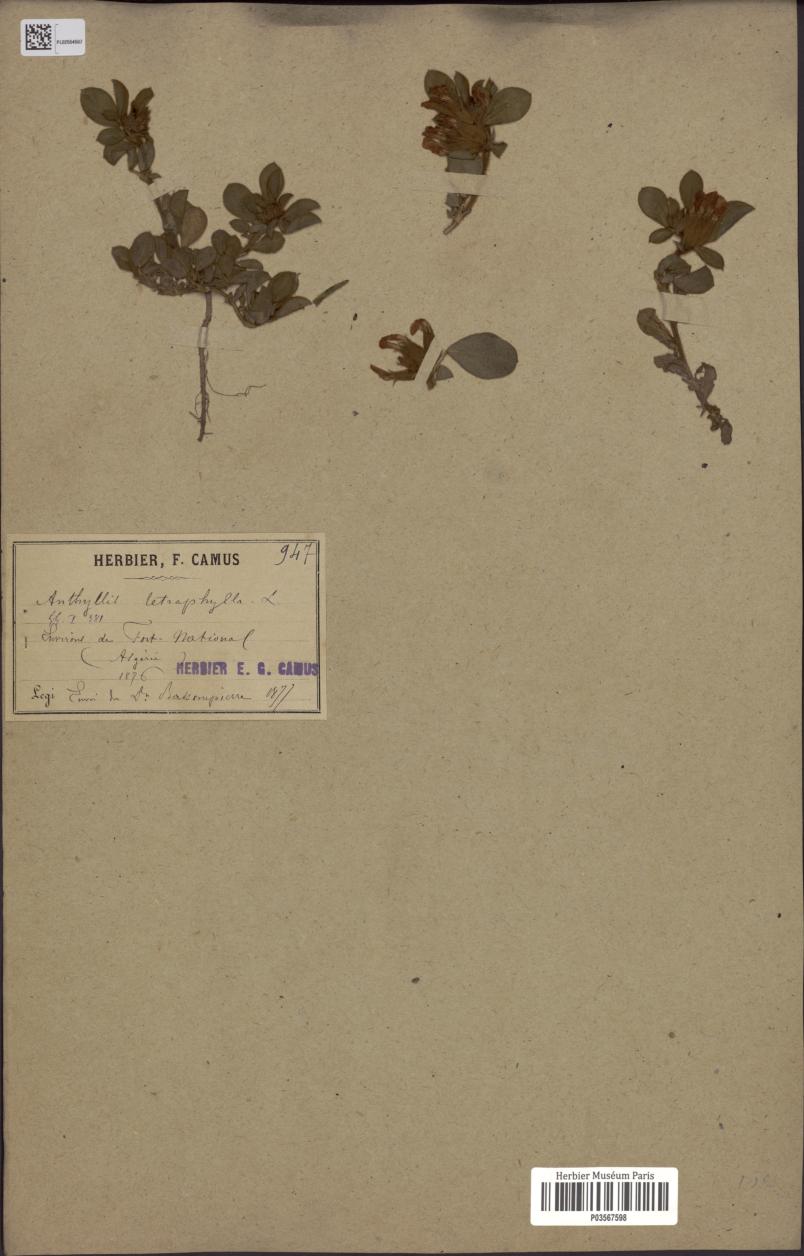 HERBIER, F. CAMUS 947
Anthyllis tetraphylla. L
Environs de Fort-National
(Algérie)
1876 HERBIER E. G. CAMUS
Legi Envoi du Dr 1877
Herbier Muséum Paris
P03567598